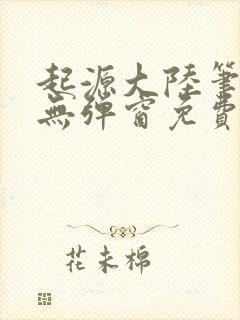 起源大陸筆
無彈窗免費
花未棉